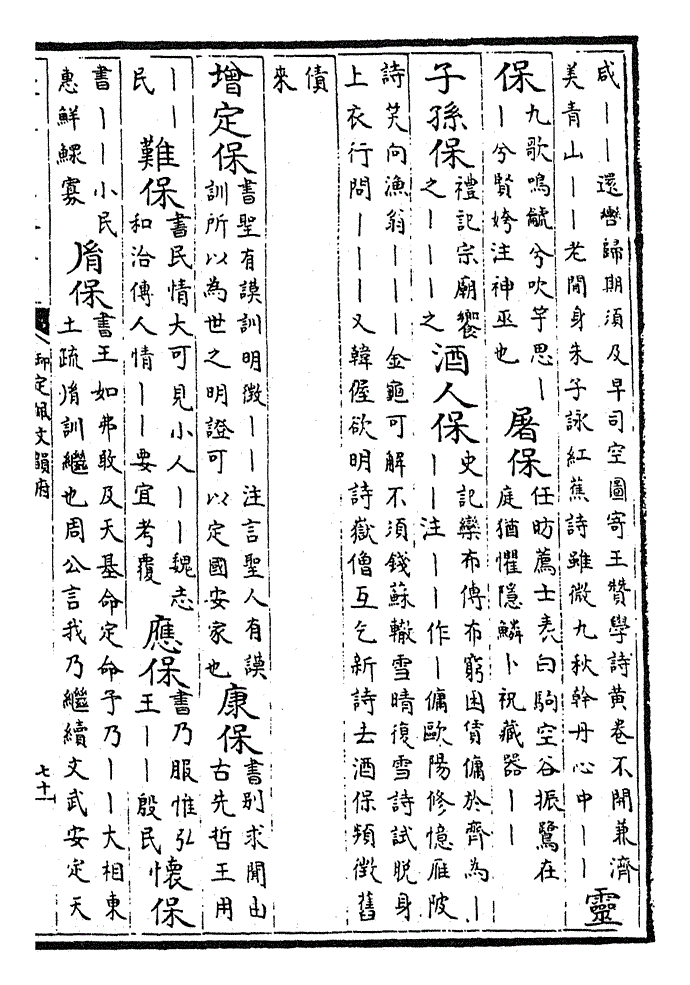 咸丨丨還轡歸期須及早司空圖寄王贊學詩黃卷不開兼濟
美青山丨丨老閒身朱子詠紅蕉詩雖微九秋幹丹心中丨丨
靈
保
九歌鳴䶵兮吹竽思丨
丨兮賢姱注神巫也
屠保
任昉薦士表白駒空谷振鷺在
庭猶懼隱鱗卜祝藏器丨丨
子孫保
禮記宗廟饗
之丨丨丨之
酒人保
史記欒布傳布窮困賃傭於齊為丨
丨丨注丨丨作丨傭歐陽修憶雁陂
詩笑向漁翁丨丨丨金龜可解不須錢蘇轍雪晴復雪詩試脫身
上衣行問丨丨丨又韓偓欲明詩嶽僧互乞新詩去酒保頻徵舊
債
來
增定保
書聖有謨訓明徵丨丨注言聖人有謨
訓所以為世之明證可以定國安家也
康保
書别求聞由
古先哲王用
丨丨
民
難保
書民情大可見小人丨丨魏志
和洽傳人情丨丨要宜考覆
應保
書乃服惟弘
王丨丨殷民
懷保
書丨丨小民
惠鮮鰥寡
胤保
書王如弗敢及天基命定命予乃丨丨大相東
土疏胤訓繼也周公言我乃繼續文武安定天
御定佩文韻府
七十一